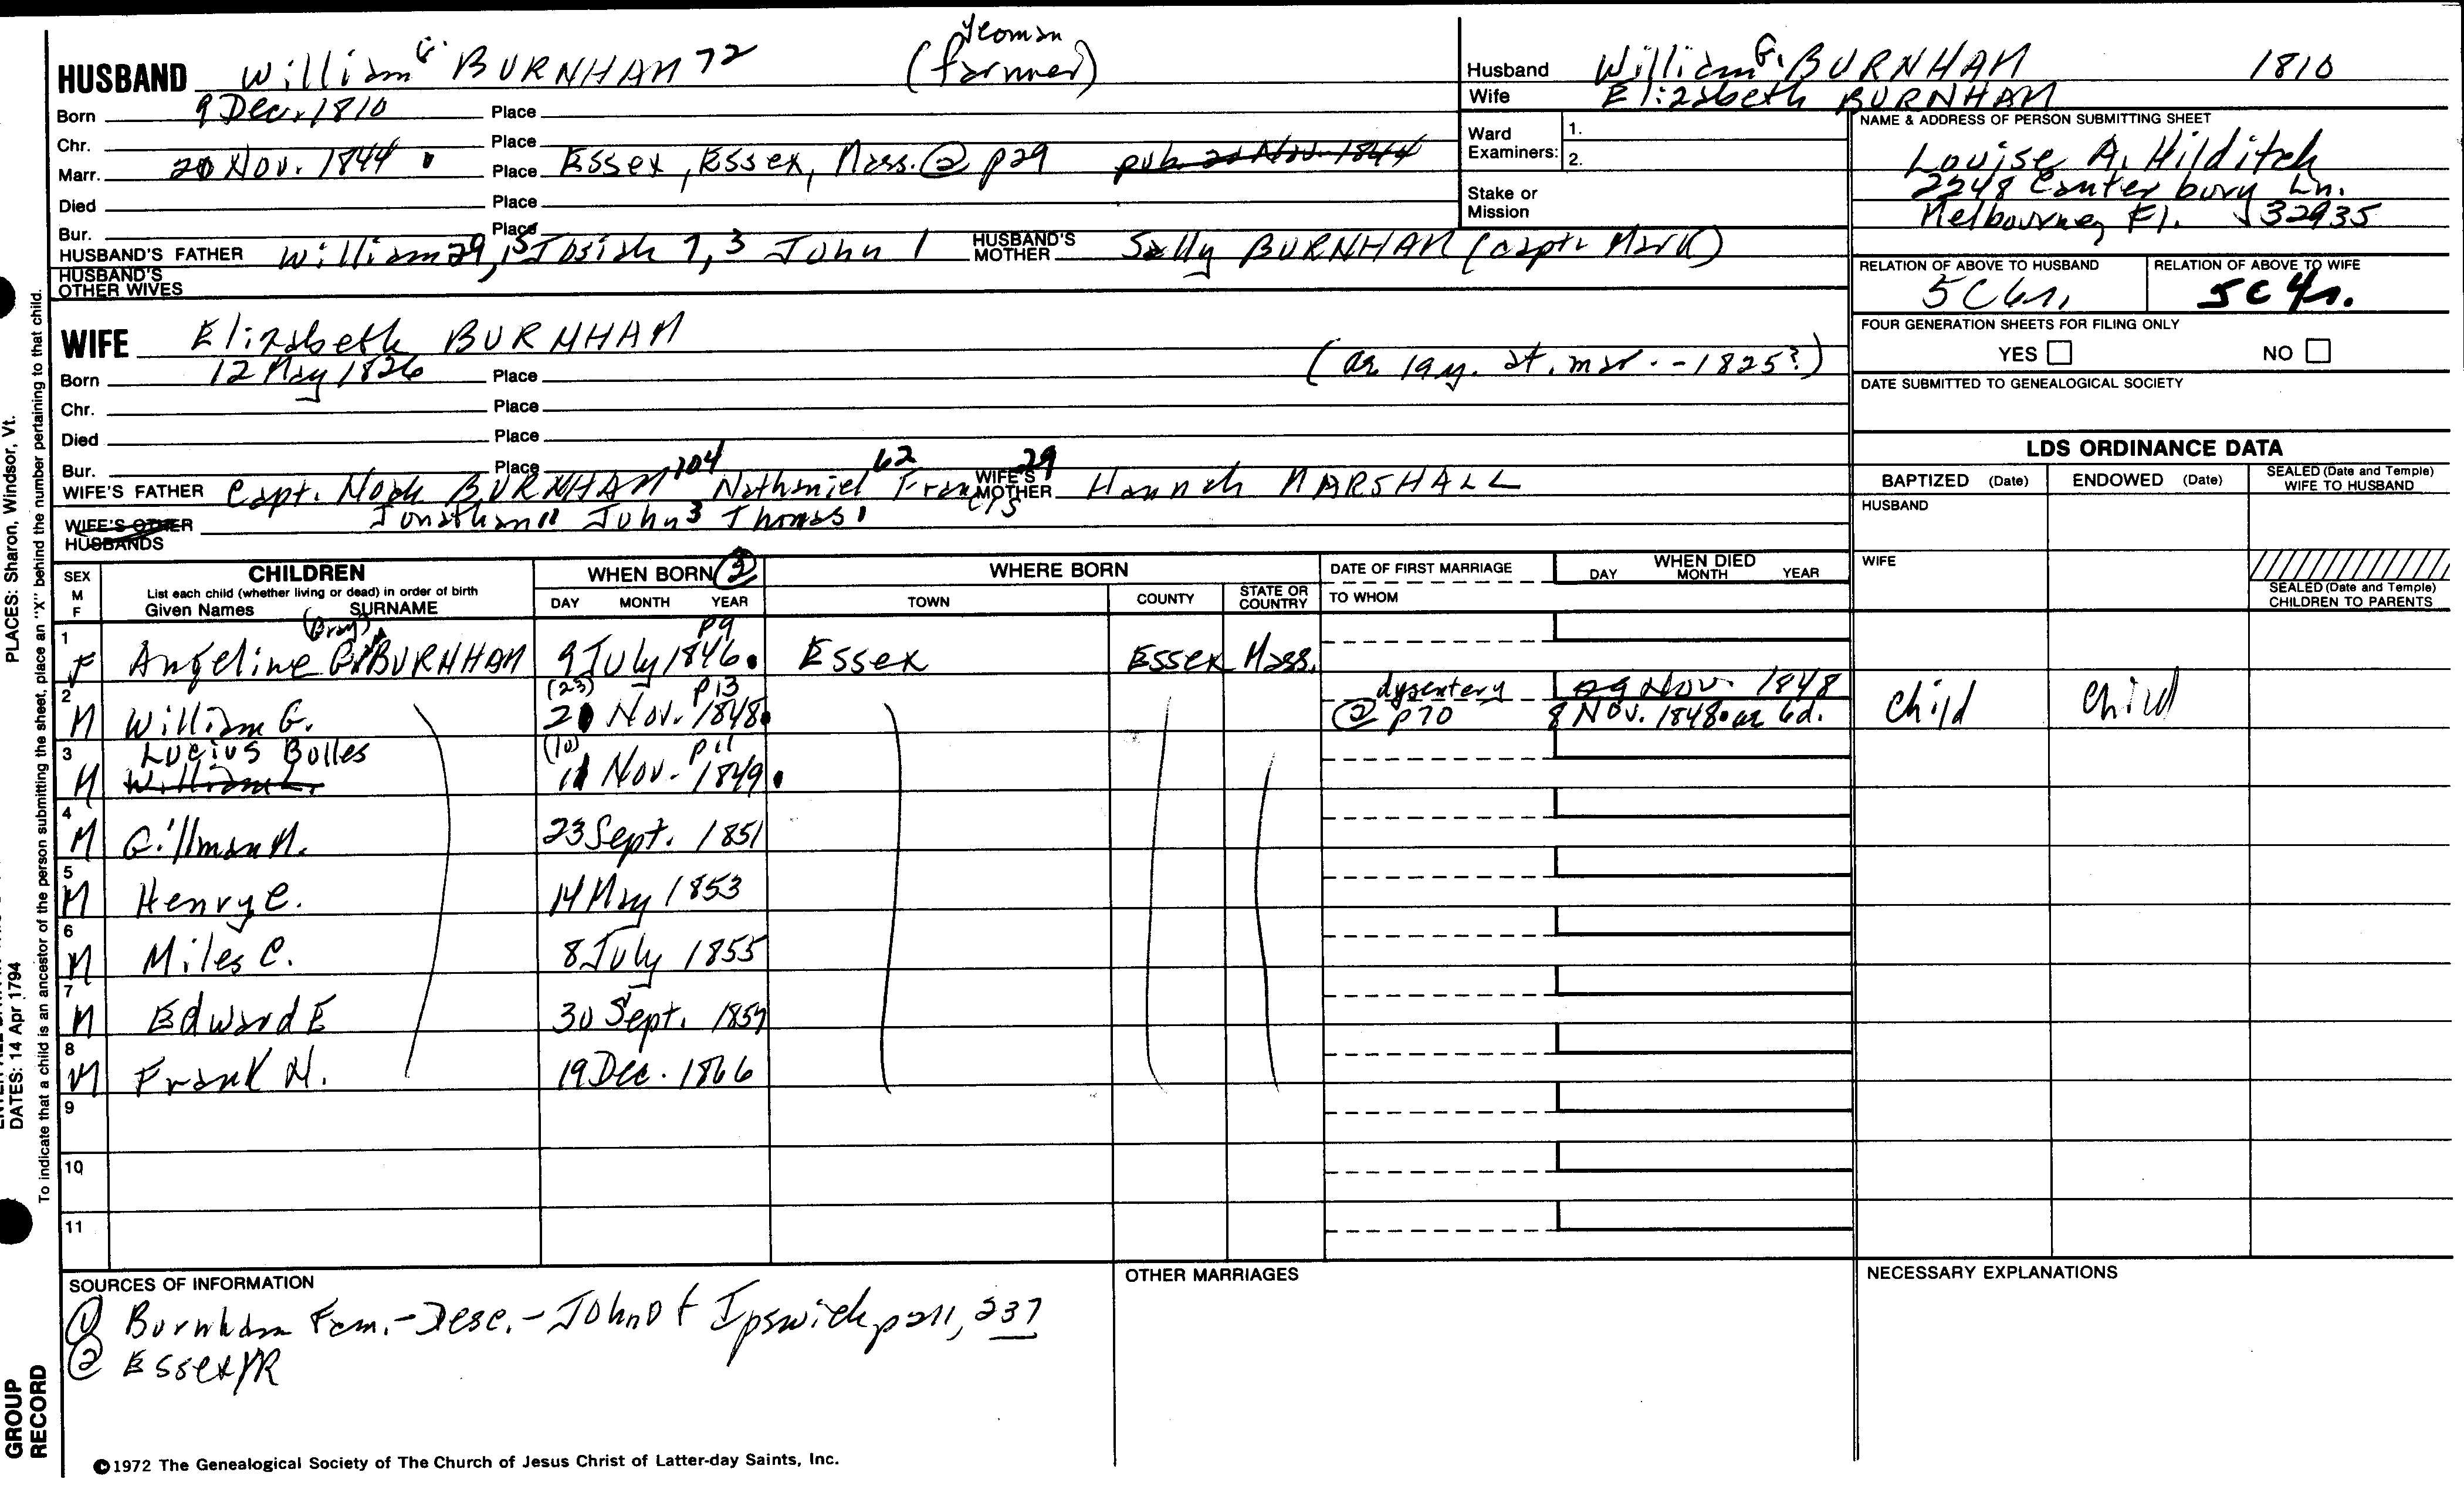 Yeoman
HUSBAND William G. BURNHAM 72 (farmer)
Born 9 Dec. 1810 Place
Chr. Place
Marr. 20 Nov. 1844 Place Essex, Essex, Mass. @ p29 pub. 20 Nov. 1844
Died Place
Bur. Place
HUSBAND'S FATHER William 29, 15 Josiah 7, 3 John 1 HUSBAND'S MOTHER Sally BURNHAM (Capt. Mark)
HUSBAND'S OTHER WIVES
WIFE Elizabeth BURNHAM
(ae 19 y. at. mar. - 1825?)
Born 12 May 1826 Place
Chr. Place
Died Place
Bur. Place
WIFE'S FATHER Capt. Noah BURNHAM 104 Nathaniel 62 Francis 29 WIFE'S MOTHER Hannah MARSHALL
Jonathan 11 John 3 Thomas 1
WIFE'S OTHER HUSBANDS
Husband William G. BURNHAM 1810
Wife Elizabeth BURNHAM
Ward Examiners: 1.
2.
Stake or Mission
NAME & ADDRESS OF PERSON SUBMITTING SHEET
Louise A. Hilditch
2248 Canterbury Ln.
Melbourne, Fl. 32935
RELATION OF ABOVE TO HUSBAND RELATION OF ABOVE TO WIFE
5C 4r.
FOUR GENERATION SHEETS FOR FILING ONLY
YES NO
DATE SUBMITTED TO GENEALOGICAL SOCIETY
LDS ORDINANCE DATA
BAPTIZED (Date) ENDOWED (Date) SEALED (Date and Temple) WIFE TO HUSBAND
HUSBAND
WIFE
SEALED (Date and Temple) CHILDREN TO PARENTS
SEX M F CHILDREN WHEN BORN 2 WHERE BORN DATE OF FIRST MARRIAGE WHEN DIED
List each child (whether living or dead) in order of birth
Given Names SURNAME DAY MONTH YEAR TOWN COUNTY STATE OR COUNTRY TO WHOM DAY MONTH YEAR
(Gray) p9
1 F Angeline G. BURNHAM 9 July 1846 Essex Essex Mass.
(23) p13 dysentery 29 Nov. 1848
2 M William G. 21 Nov. 1848 @ p70 8 Nov. 1848 ae 6d. child child
Lucius Bolles (10) p11
3 M William L. 11 Nov. 1849
4 M Gillman M. 23 Sept. 1851
5 M Henry C. 14 May 1853
6 M Miles C. 8 July 1855
7 M Edward E 30 Sept. 1859
8 M Frank N. 19 Dec. 1866
9
10
11
SOURCES OF INFORMATION
① Burnham Fam. - Desc. - John of Ipswich p 211, 237
② Essex VR
OTHER MARRIAGES
NECESSARY EXPLANATIONS
©1972 The Genealogical Society of The Church of Jesus Christ of Latter-day Saints, Inc.
PLACES: Sharon, Windsor, Vt.
DATES: 14 Apr 1794
To indicate that a child is an ancestor of the person submitting the sheet, place an "X" behind the number pertaining to that child.
GROUP RECORD